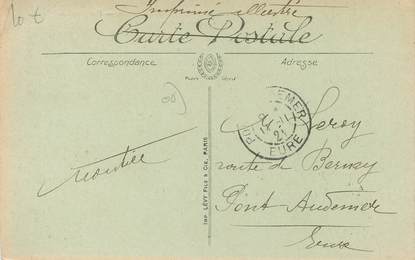 10 €
Imprimé illustré
Carte Postale
Correspondance
Adresse
PONT-AUDEMER
EURE
21
Leroy
route de Bernay
Pont Audemer
Eure
IMP. LÉVY FILS & CIE, PARIS